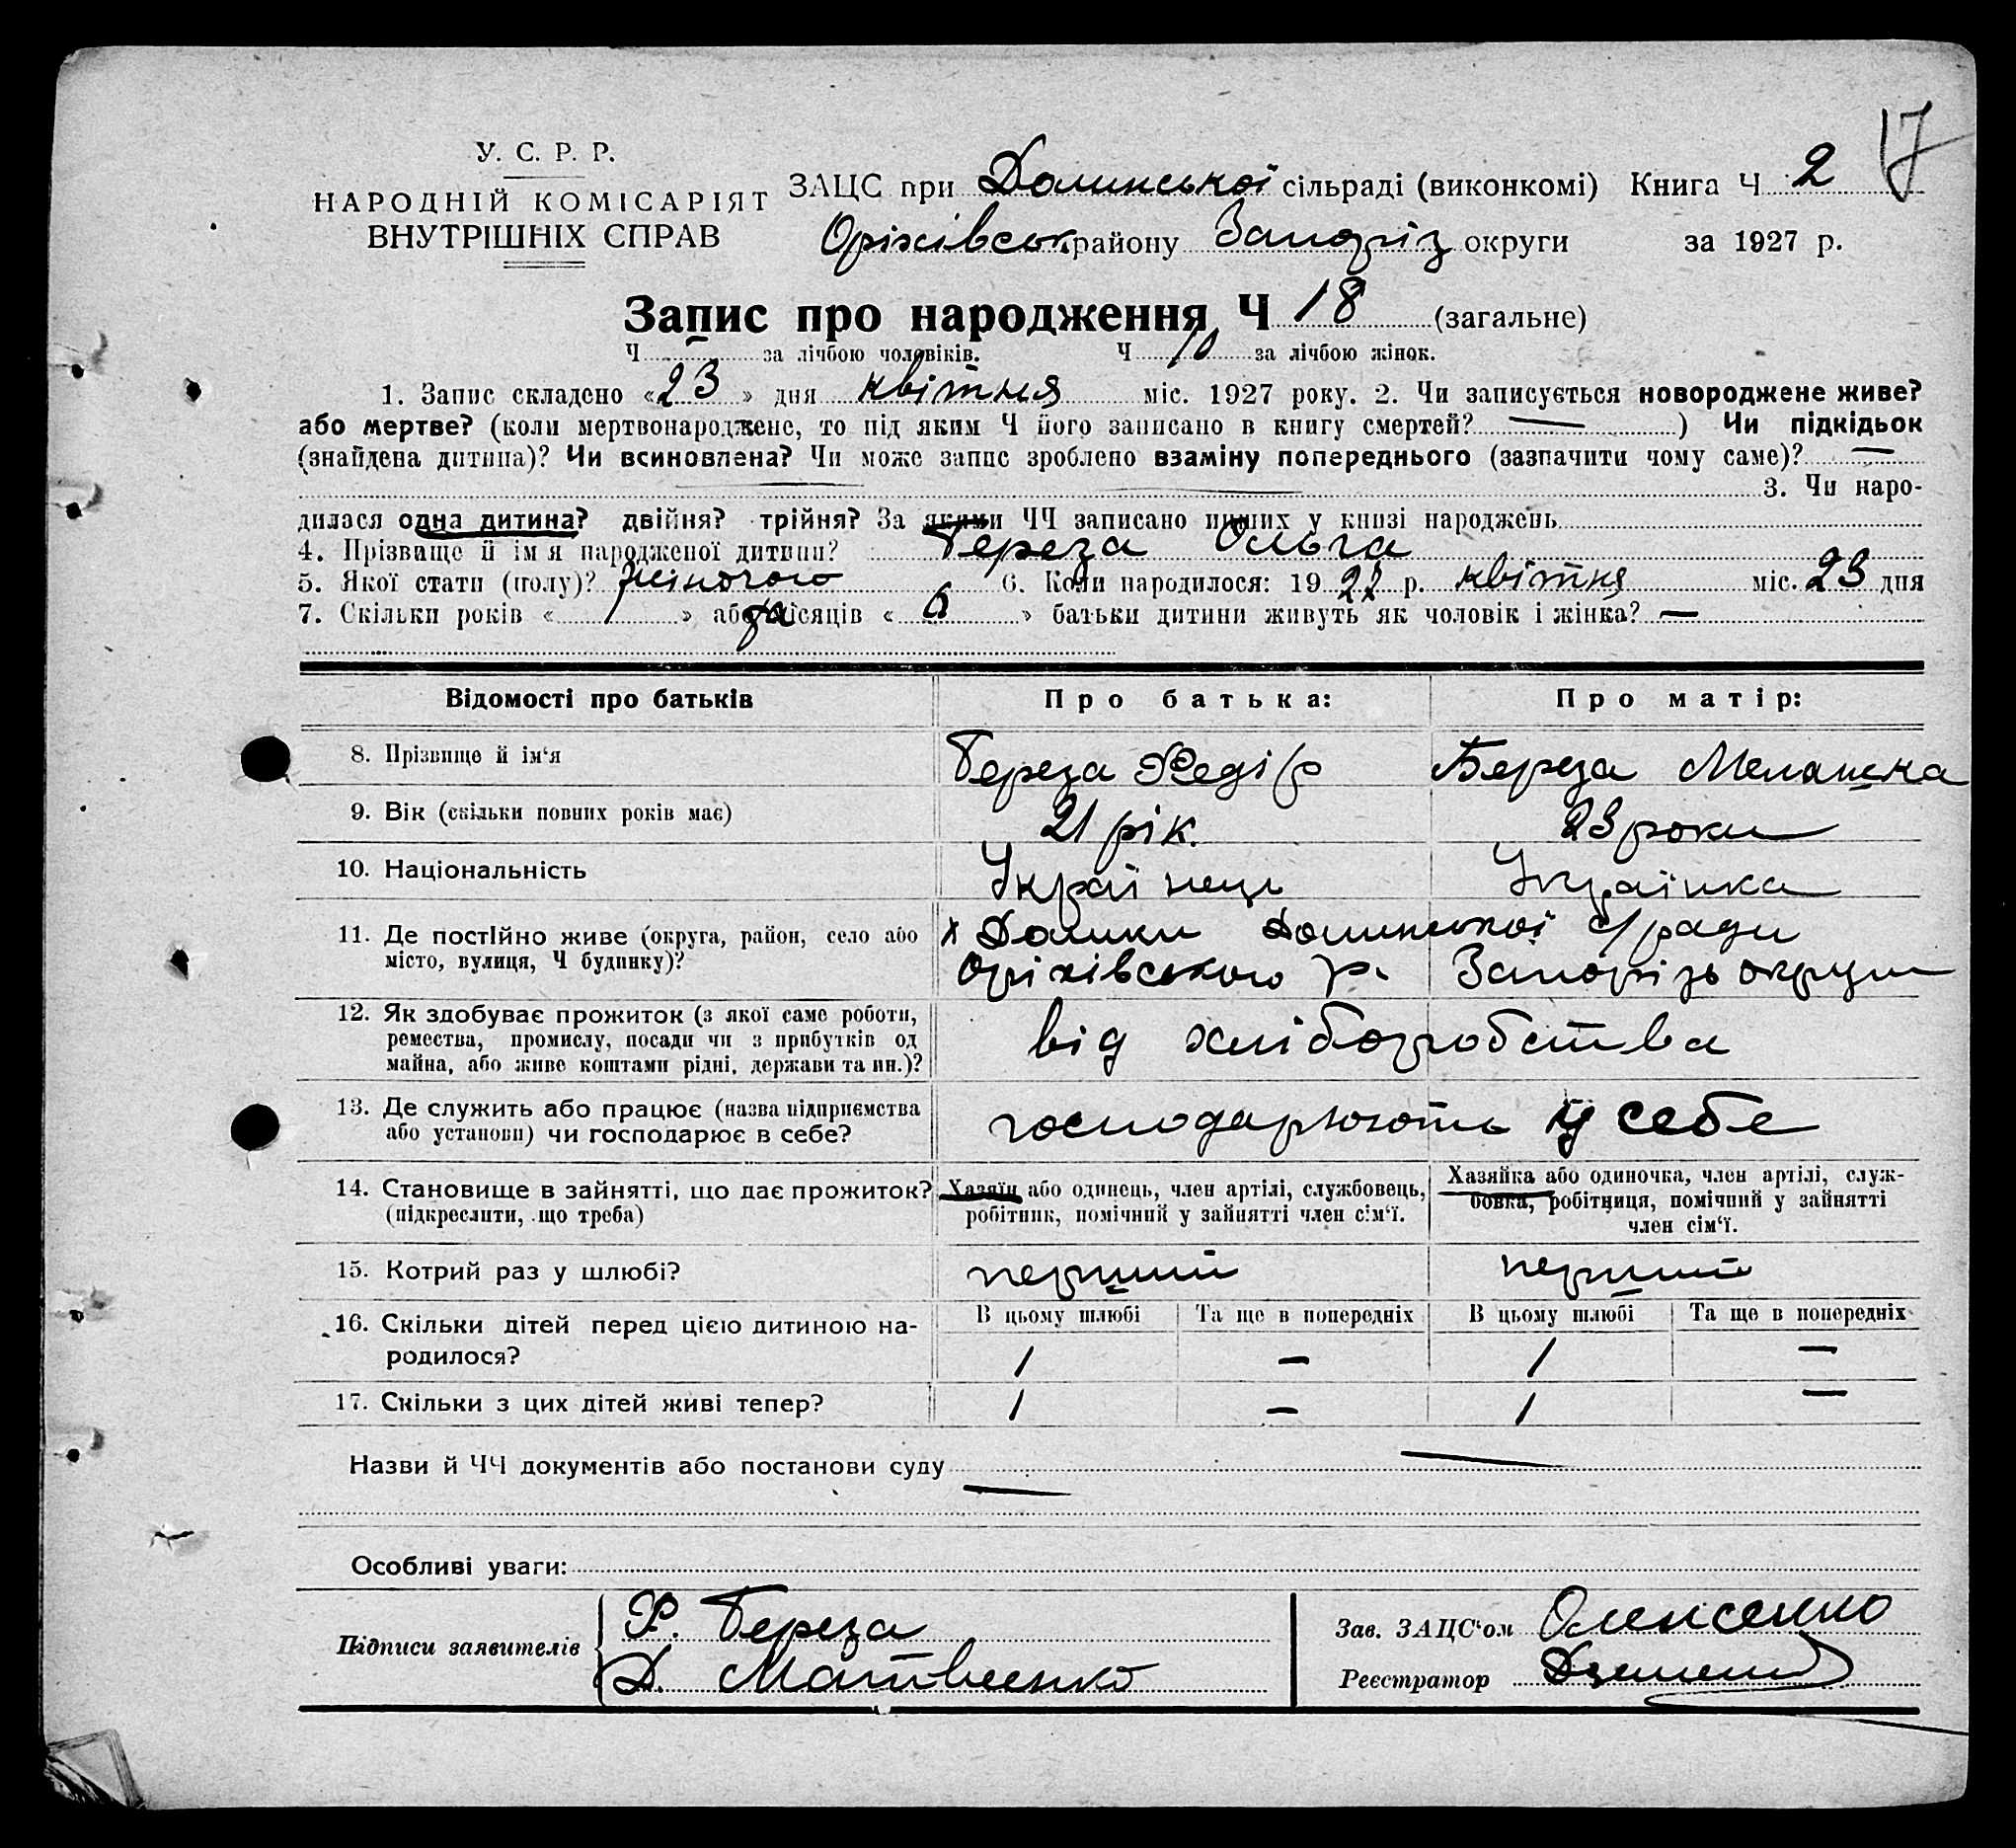 17
У. С. Р. Р.
НАРОДНІЙ КОМІСАРІЯТ
ВНУТРІШНІХ СПРАВ
ЗАЦС при Долинської сільраді (виконкомі) Книга Ч 2
Оріхівськ. району Запоріз округи за 1927 р.
Запис про народження Ч 18 (загальне)
Ч — за лічбою чоловіків. Ч 10 за лічбою жінок.
1. Запис складено «23» дня квітня міс. 1927 року. 2. Чи записується новороджене живе?
або мертве? (коли мертвонароджене, то під яким Ч його записано в книгу смертей? —) Чи підкідьок
(знайдена дитина)? Чи всиновлена? Чи може запис зроблено взаміну попереднього (зазначити чому саме)? —
3. Чи наро-
дилася одна дитина? двійня? трійня? За якими ЧЧ записано инших у книзі народжень
4. Прізвище й ім я народженої дитини? Береза Ольга
5. Якої стати (полу)? жіночого 6. Коли народилося: 1922 р. квітня міс. 23 дня
7. Скільки років « / » або місяців « 6 » батьки дитини живуть як чоловік і жінка? —
Відомості про батьків Про батька: Про матір:
8. Прізвище й ім‘я Береза Федір Береза Меланка
9. Вік (скільки повних років має) 21 рік. 23 роки
10. Національність Українець Українка
11. Де постІйно живе (округа, район, село або х Долинки Долинської с/ради
місто, вулиця, Ч будинку)? Оріхівського р. Запорізь округи
12. Як здобуває прожиток (з якої саме роботи,
ремества, промислу, посади чи з прибутків од від хліборобства
майна, або живе коштами рідні, держави та ин.)?
13. Де служить або працює (назва підприємства
або установи) чи господарює в себе? господарюють у себе
14. Становище в зайнятті, що дає прожиток? Хазяїн або одинець, член артілі, службовець, Хазяйка або одиночка, член артілі, служ-
(підкреслити, що треба) робітник, помічний у зайнятті член сім‘ї. бовка, робітниця, помічний у зайнятті
член сім‘ї.
15. Котрий раз у шлюбі? перший перший
16. Скільки дітей перед цією дитиною на- В цьому шлюбі Та ще в попередніх В цьому шлюбі Та ще в попередніх
родилося? 1 — 1 —
17. Скільки з цих дітей живі тепер? 1 — 1 —
Назви й ЧЧ документів або постанови суду —
Особливі уваги:
Підписи заявителів Ф. Береза
Д. Матвеенко
Зав. ЗАЦС‘ом Олексенко
Реєстратор